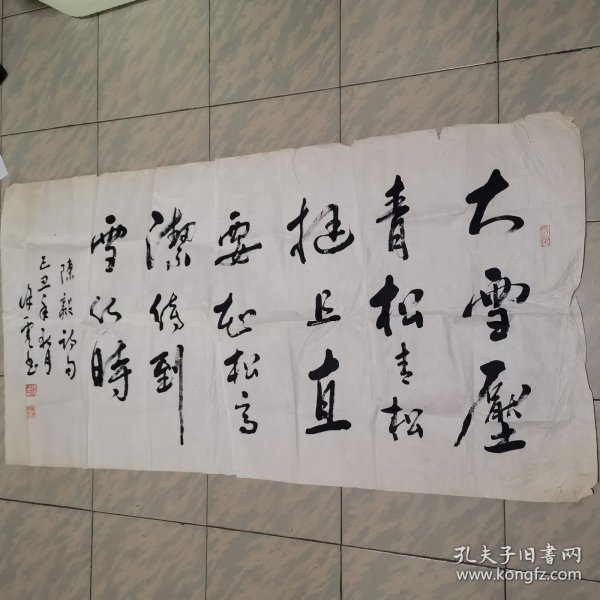 大雪壓
青松青松
挺且直
要知松高
潔待到
雪化時
陳毅詩句
己丑年秋月
孔夫子旧书网
www.kongfz.com